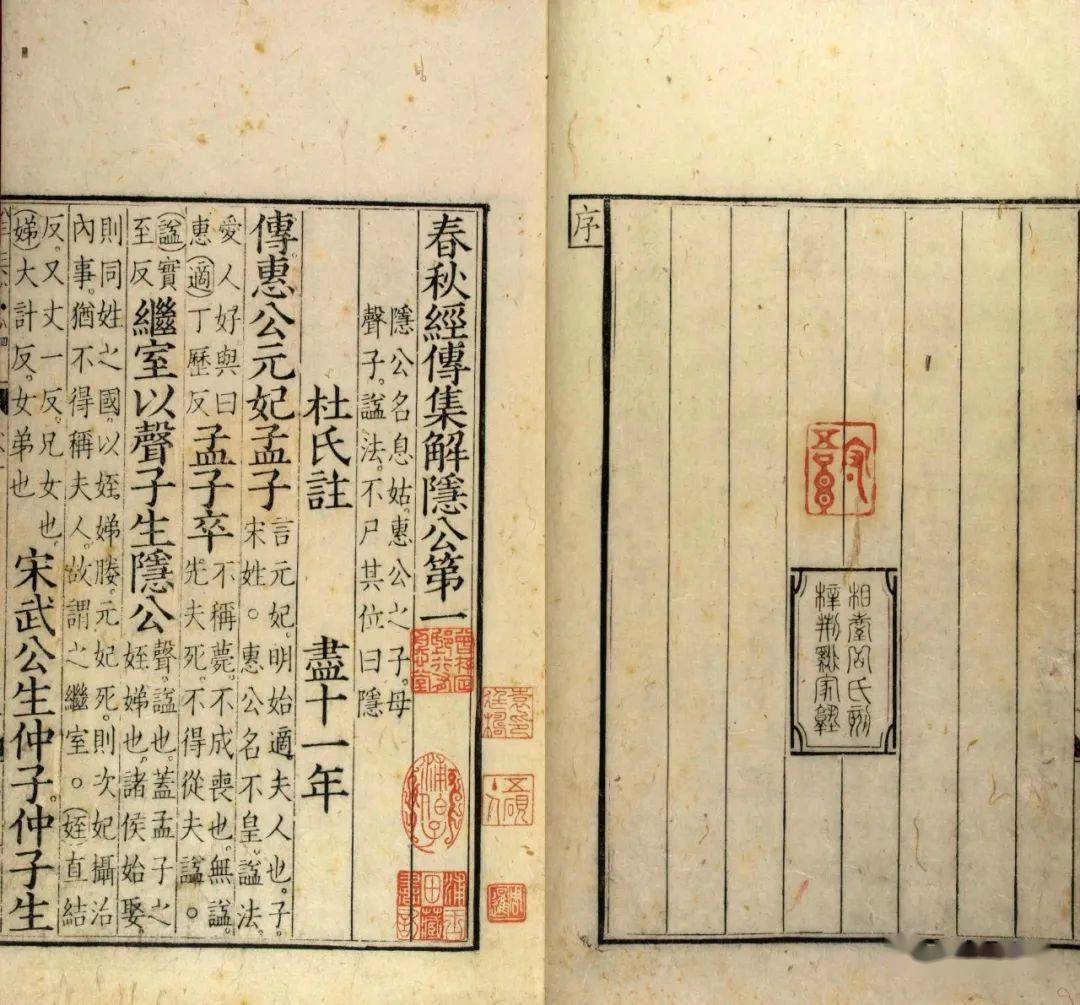 序
相臺岳氏刻
梓荆谿家塾
春秋經傳集解隱公第一
隱公名息姑。惠公之子。母
聲子。謚法。不尸其位曰隱
杜氏註 盡十一年
傳惠公元妃孟子 言元妃。明始適夫人也。子宋姓。惠公名不皇。謚法
愛人好與曰惠適丁歷反 孟子卒 不稱薨。不成喪也。無謚。先夫死。不得從夫謚。
謚實至反 繼室以聲子生隱公 聲。謚也。蓋孟子之姪娣也。諸侯始娶。
則同姓之國。以姪。娣媵。元妃死。則次妃攝治
內事。猶不得稱夫人。故謂之繼室。姪直結
反。又丈一反。兄女也。娣大計反。女弟也 宋武公生仲子。仲子生